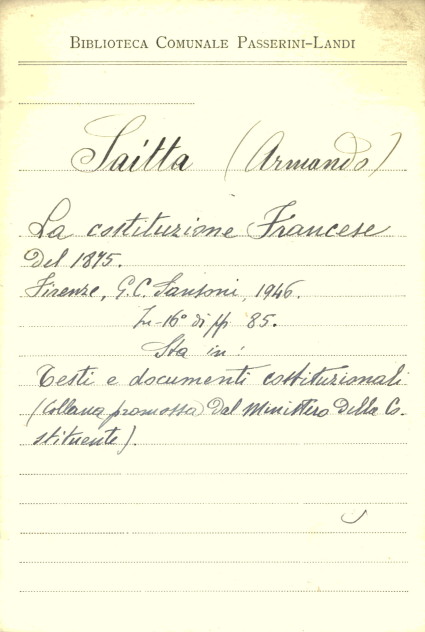 BIBLIOTECA COMUNALE PASSERINI-LANDI
Saitta (Armando)
La costituzione Francese
del 1875.
Firenze, G.C. Sansoni, 1946.
In-16° di pp. 85.
Sta in:
Testi e documenti costituzionali
(Collana promossa dal Ministero della Co-
stituente).